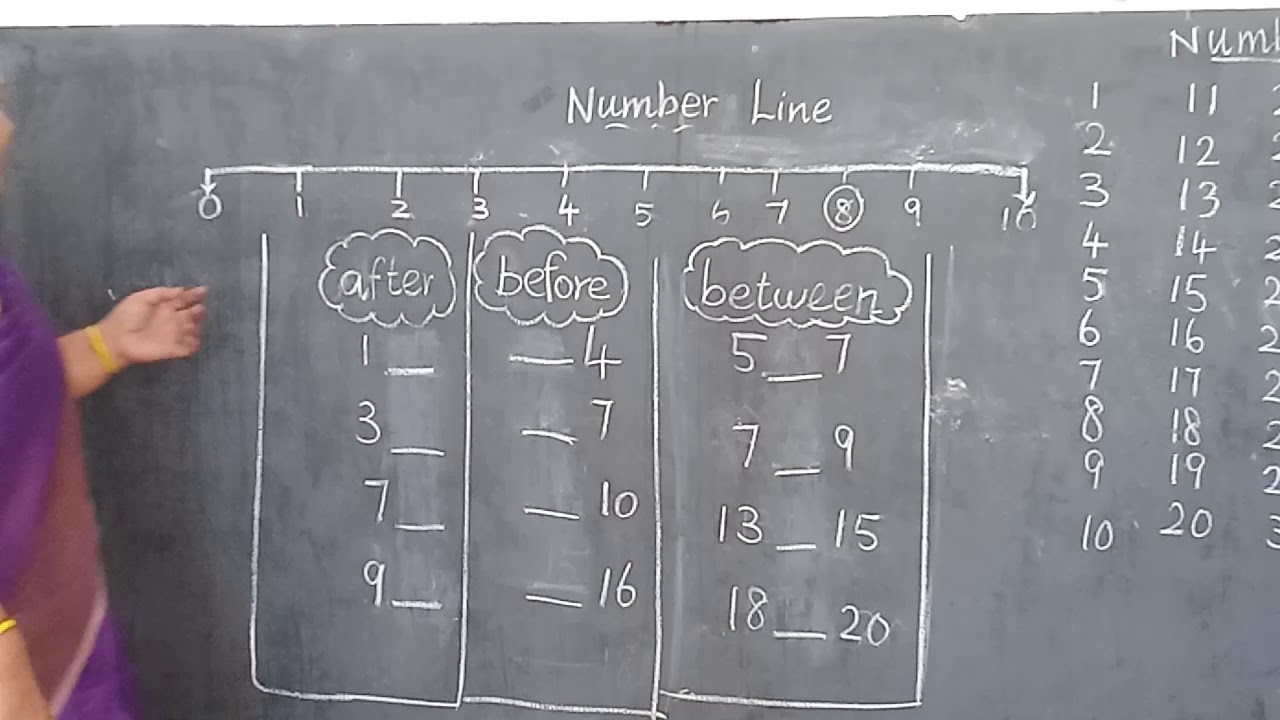 Number Line
0 1 2 3 4 5 6 7 8 9 10
after before between
1 __ __ 4 5 __ 7
3 __ __ 7 7 __ 9
7 __ __ 10 13 __ 15
9 __ __ 16 18 __ 20
1 11
2 12
3 13
4 14
5 15
6 16
7 17
8 18
9 19
10 20